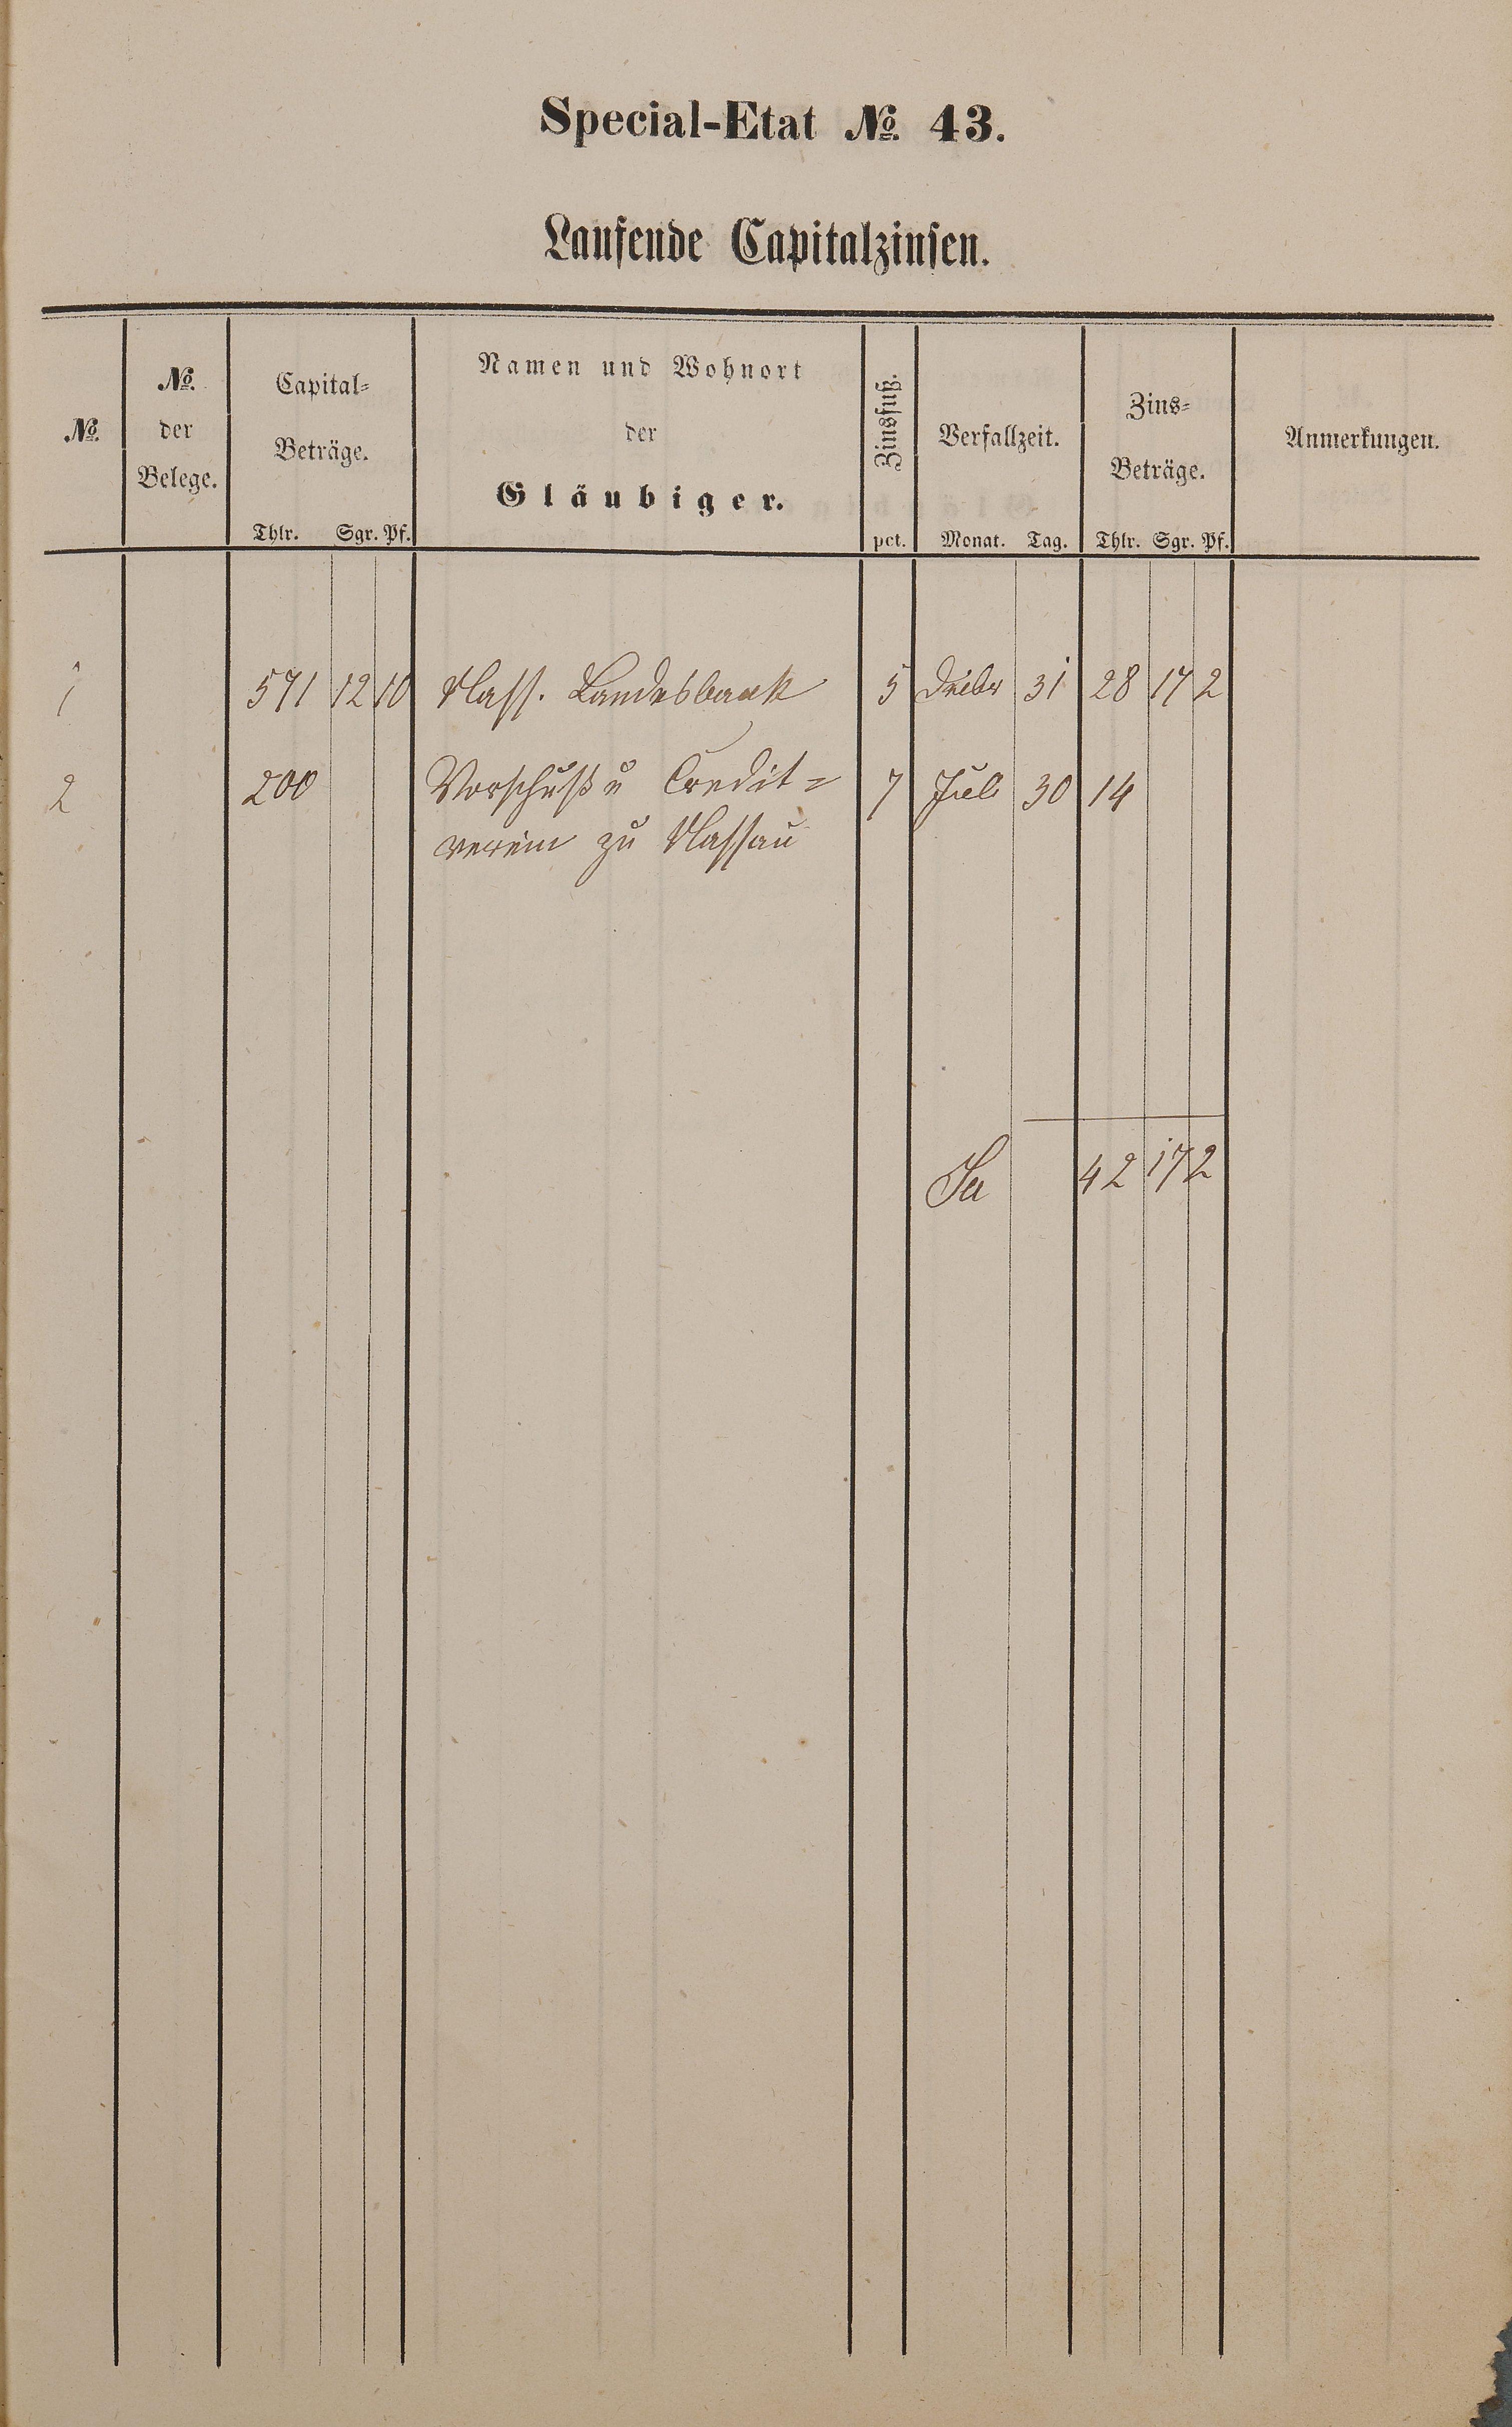 Special-Etat № 43.
Laufende Capitalzinsen.
№ | № der Belege. | Capital-Beträge. | Namen und Wohnort der Gläubiger. | Zinsfuß. | Verfallzeit. | Zins-Beträge. | Anmerkungen.
Thlr. Sgr. Pf. | pct. | Monat. Tag. | Thlr. Sgr. Pf.
1 571 12 10 Nass. Landesbank 5 Dcbr 31 28 17 2
2 200 Vorschuß u Credit= 7 Juli 30 14
verein zu Nassau
Sa 42 17 2